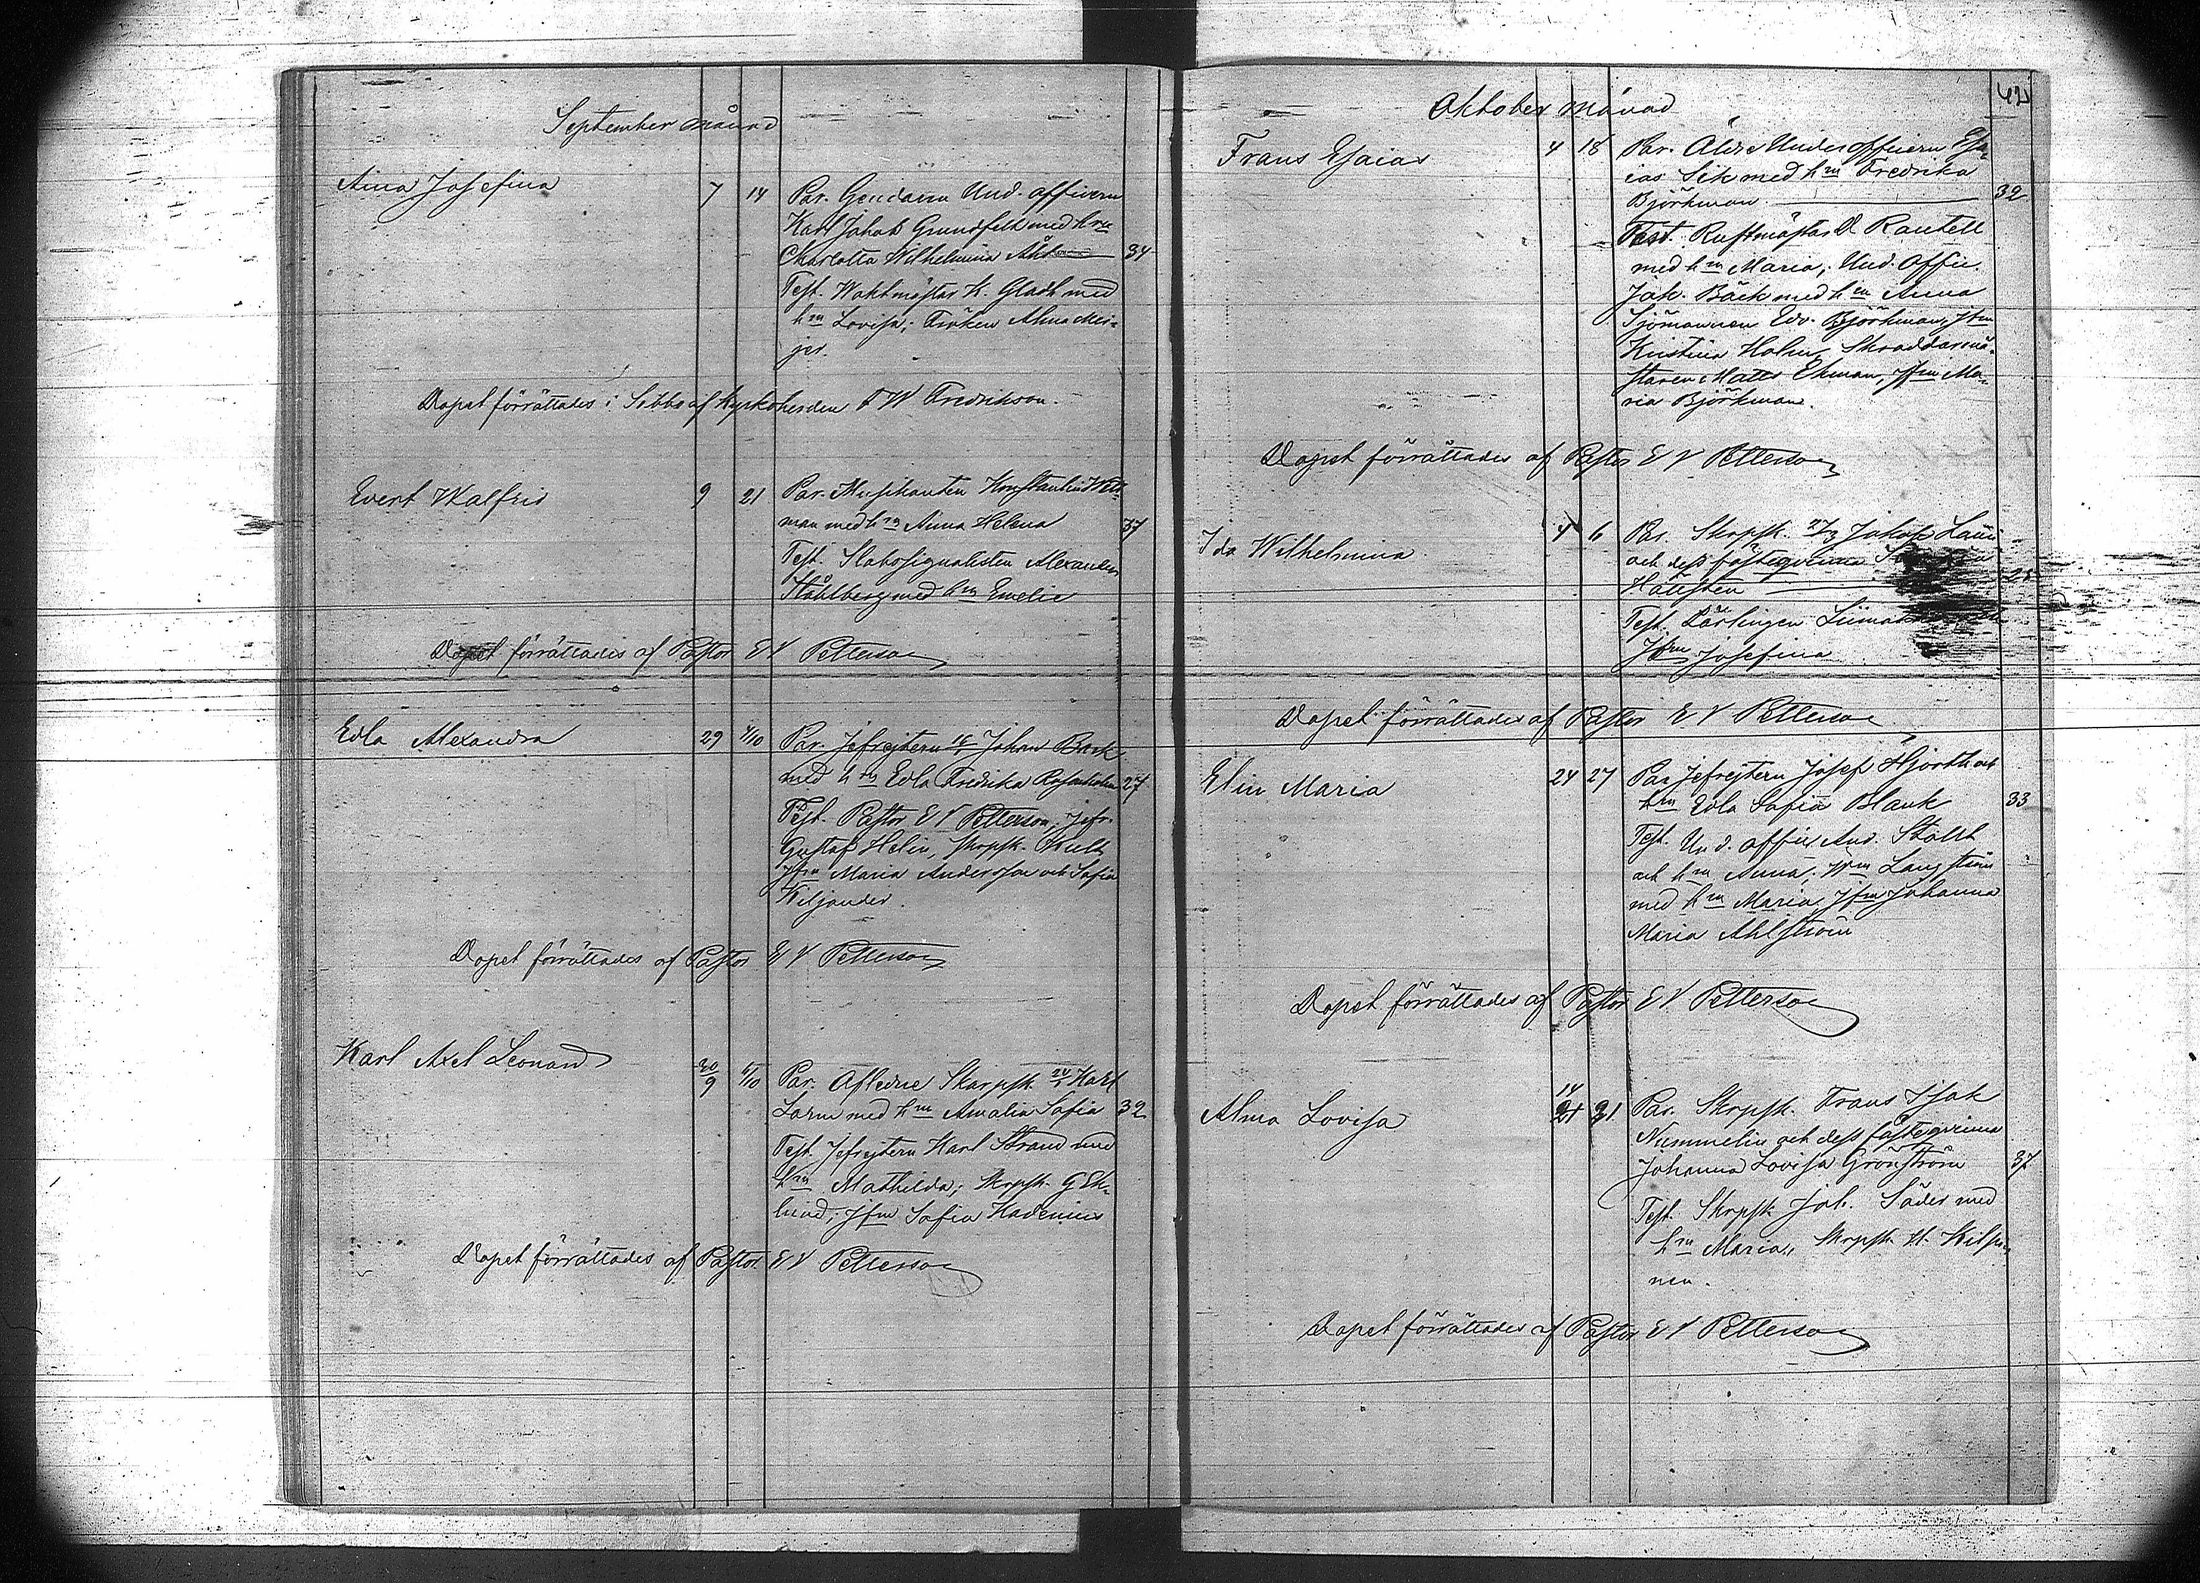 September månad
Aina Josefina 7 14 Par. Gendarm Und. officern
Karl Jakob Grundfelt med hru
Charlotta Wilhelmina 34
Test. Waktmästar K. Gladh med
hru Lovisa; Fröken Alma Mei-
jer.
Dopet förrättades i Sibbo af Kyrkoherden F W Fredrikson.
Evert Walfrid 9 21 Par. Musikanten Konstantin Wid-
man med hru Anna Helena 37
Test. Stabssignalisten Alexander
Ståhlberg med hru Emelie
Dopet förrättades af Pastor E V Petterson
Edla Alexandra 29 4/10 Par. Jefrejtern Johan Back
med hru Edla Fredrika 27
Test. Pastor E V Petterson; Jefr.
Gustaf Helin, Skrpsk.
Jfru Maria Andersson och Sofia
Wiljander.
Dopet förrättades af Pastor E V Petterson
Karl Axel Leonard 30/9 /10 Par. Afledne Skarpsk. Karl
Larm med hru Amalia Sofia 32
Test. Jefrejtern Karl Strand med
hru Mathilda; Skrpsk. G Ek-
lund; Jfru Sofia Kadenius
Dopet förrättades af Pastor E V Petterson
42
Oktober månad
Frans Esaias 4 18 Par. Äldre Underofficern Esa-
ias Sik med hru Fredrika
Björkman 32
Test. Rustmästar D Rantell
med hru Maria; Und. offic.
Jak. Bäck med hru Anna
Sjömannen Edv. Björkman, Jfru
Kristina Holm, Skraddarmä-
staren Matts Ekman, Jfru Ma-
ria Björkman.
Dopet förrättades af Pastor E V Petterson
Ida Wilhelmina 4 6 Par. Skrpsk. Jakob
och dess fästeqvinna
Hällsten
Test. Lärlingen
Jfru Josefina
Dopet förrättades af Pastor E V Petterson
Elin Maria 24 27 Par. Jefrejtern Josef Hjorth och
hru Edla Sofia Blank 33
Test. Und. offic. And. Stolt
och hru Anna; Långström
med hru Maria, Jfru Johanna
Maria Ahlström
Dopet förrättades af Pastor E V Petterson
14
Alma Lovisa 21 21 Par. Skrpsk. Frans Isak
Nummelin och dess fästeqvinna
Johanna Lovisa Grönström 37
Test. Skrpsk. Joh. Söder med
hru Maria, Skrpsk. H. Kilpi-
nen.
Dopet förrättades af Pastor E V Petterson